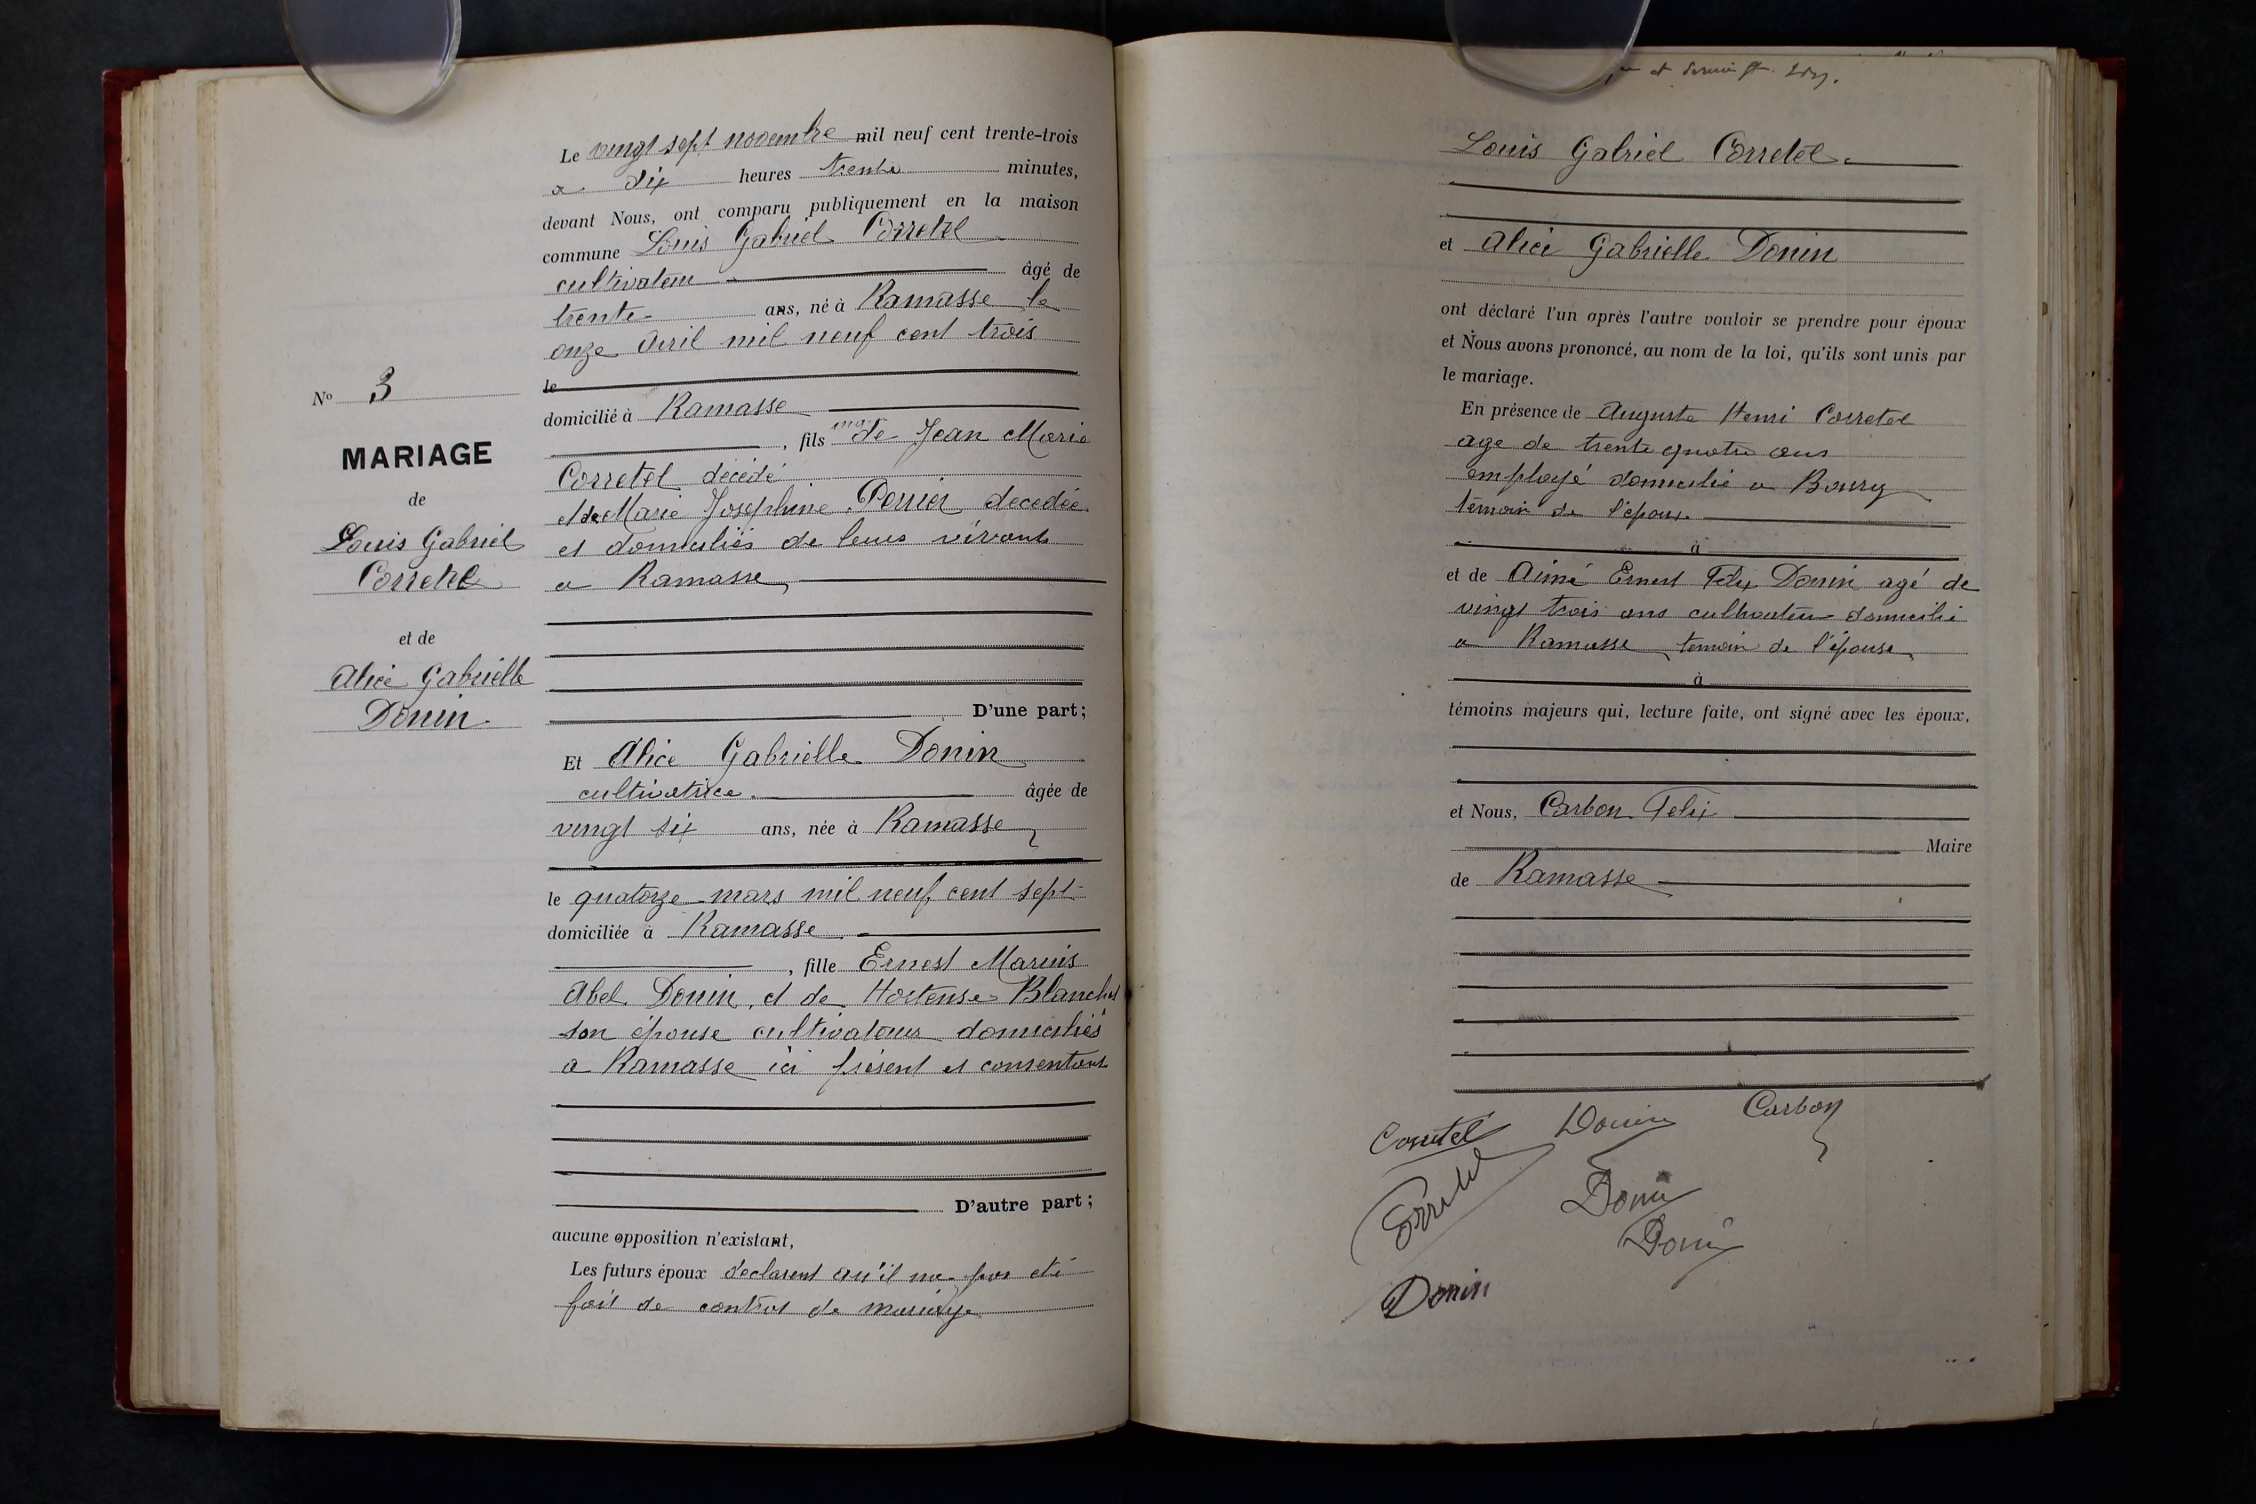 Le vingt sept novembre mil neuf cent trente-trois
a dix heures trente minutes,
devant Nous, ont comparu publiquement en la maison
commune Louis Gabriel Corretel
cultivateur âgé de
trente ans, né à Ramasse le
onze Avril mil neuf cent trois
le
domicilié à Ramasse
, fils de Jean Marie
Corretel décédé
et de Marie Joséphine Perrier décédée
et domiciliés de leurs vivants
a Ramasse
D'une part;
Et Alice Gabrielle Donin
cultivatrice âgée de
vingt six ans, née à Ramasse
le quatorze mars mil neuf cent sept
domiciliée à Ramasse
, fille Ernest Marius
Abel Donin, et de Hortense Blanchet
son épouse cultivateurs domiciliés
a Ramasse ici présent et consentant
D'autre part;
aucune opposition n'existant,
Les futurs époux déclarent qu'il n'a pas été
fait de contrat de mariage
No 3
MARIAGE
de
Louis Gabriel
Corretel
et de
Alice Gabrielle
Donin
Louis Gabriel Corretel
et Alice Gabrielle Donin
ont déclaré l'un après l'autre vouloir se prendre pour époux
et Nous avons prononcé, au nom de la loi, qu'ils sont unis par
le mariage.
En présence de Auguste Henri Corretel
age de trente quatre ans
employé domicilié a Bourg
témoin de l'époux
à
et de Aimé Ernest Felix Donin agé de
vingt trois ans cultivateur domicilié
a Ramasse temoin de l'épouse
à
témoins majeurs qui, lecture faite, ont signé avec les époux,
et Nous, Carbon Felix
Maire
de Ramasse
Corretel Donin Carbon
Corretel Donin
Donin
Donin